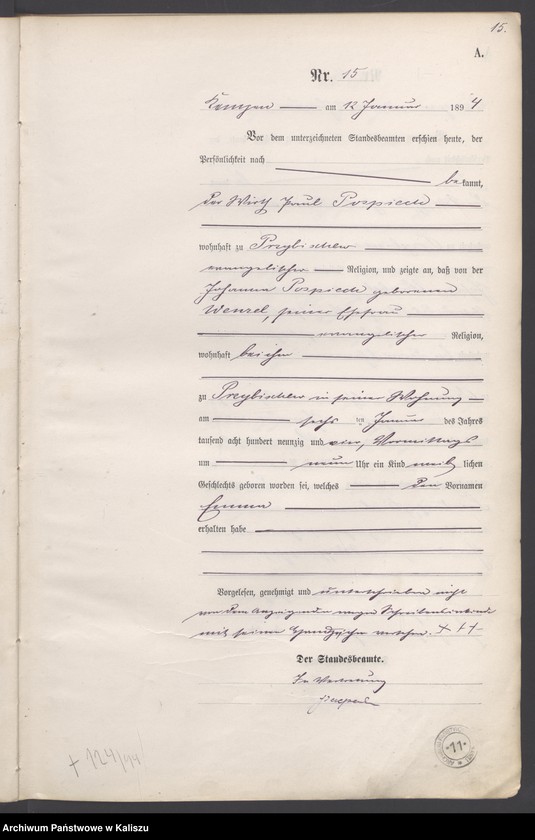 15.
A.
Nr. 15
Kempen am 12 Januar 1894
Vor dem unterzeichneten Standesbeamten erschien heute, der
Persönlichkeit nach
bekannt,
der Wirth Paul Pospiech
wohnhaft zu
evangelischer Religion, und zeigte an, daß von der
Johanna Pospiech geborenen
Wenzel, seiner Ehefrau
evangelischer Religion,
wohnhaft bei ihm
zu in seiner Wohnung
am sechs ten Januar des Jahres
tausend acht hundert neunzig und vier, Vormittags
um neun Uhr ein Kind weib lichen
Geschlechts geboren worden sei, welches den Vornamen
Emma
erhalten habe
Vorgelesen, genehmigt und unterschrieben nicht
von dem Anzeigenden wegen
mit seinem Handzeichen versehen. +++
Der Standesbeamte.
In Vertretung
+ 124/94
11
Archiwum Państwowe w Kaliszu